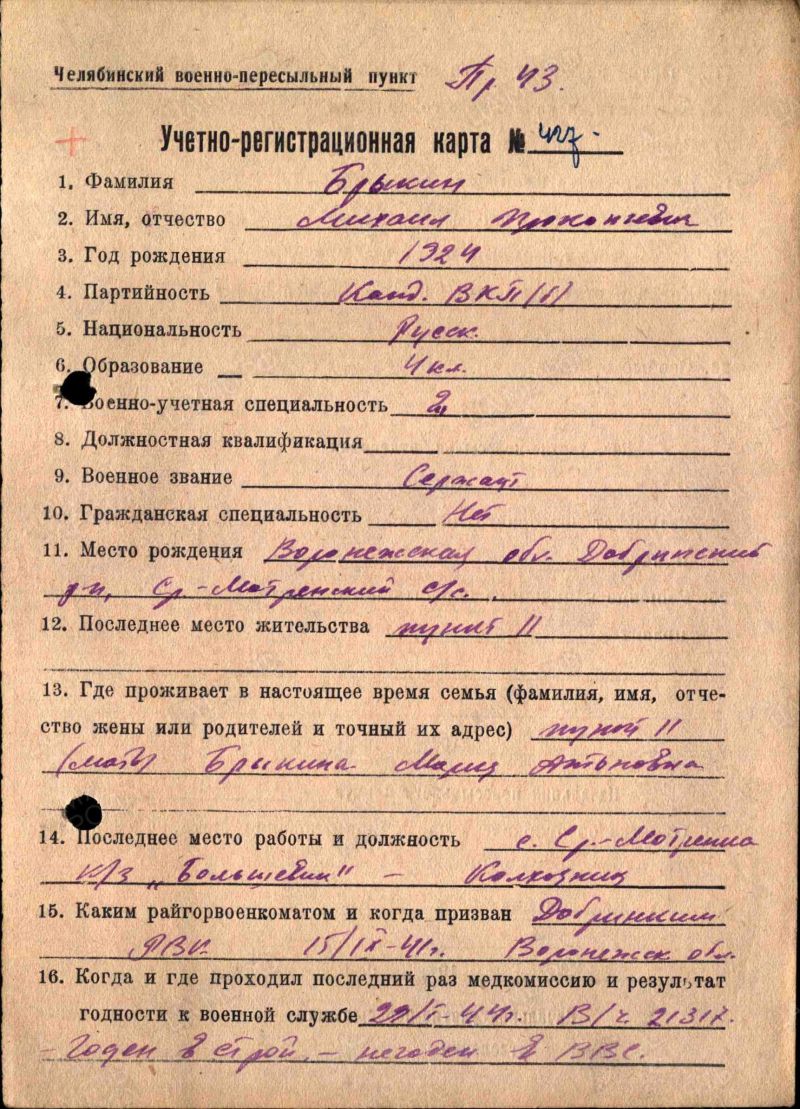 Челябинский военно-пересыльный пункт Пр 43.
Учетно-регистрационная карта №
1. Фамилия Брыкин
2. Имя, отчество Михаил Прокопьевич
3. Год рождения 1924
4. Партийность Канд. ВКП/б/
5. Национальность Русск.
6. Образование 4 кл.
7. Военно-учетная специальность 2
8. Должностная квалификация
9. Военное звание Сержант
10. Гражданская специальность Нет
11. Место рождения Воронежская обл. Добринский
р-н, Ср-Матренский с/с.
12. Последнее место жительства пункт 11
13. Где проживает в настоящее время семья (фамилия, имя, отче-
ство жены или родителей и точный их адрес) пункт 11
(мать) Брыкина Мария
14. Последнее место работы и должность с. Ср-Матренка
к/з „Большевик" - Колхозник
15. Каким райгорвоенкоматом и когда призван Добринским
РВК 15/IX-41г. Воронежск обл.
16. Когда и где проходил последний раз медкомиссию и результат
годности к военной службе 29/I-44г. В/ч
- Годен в строй, - негоден в ВВС.